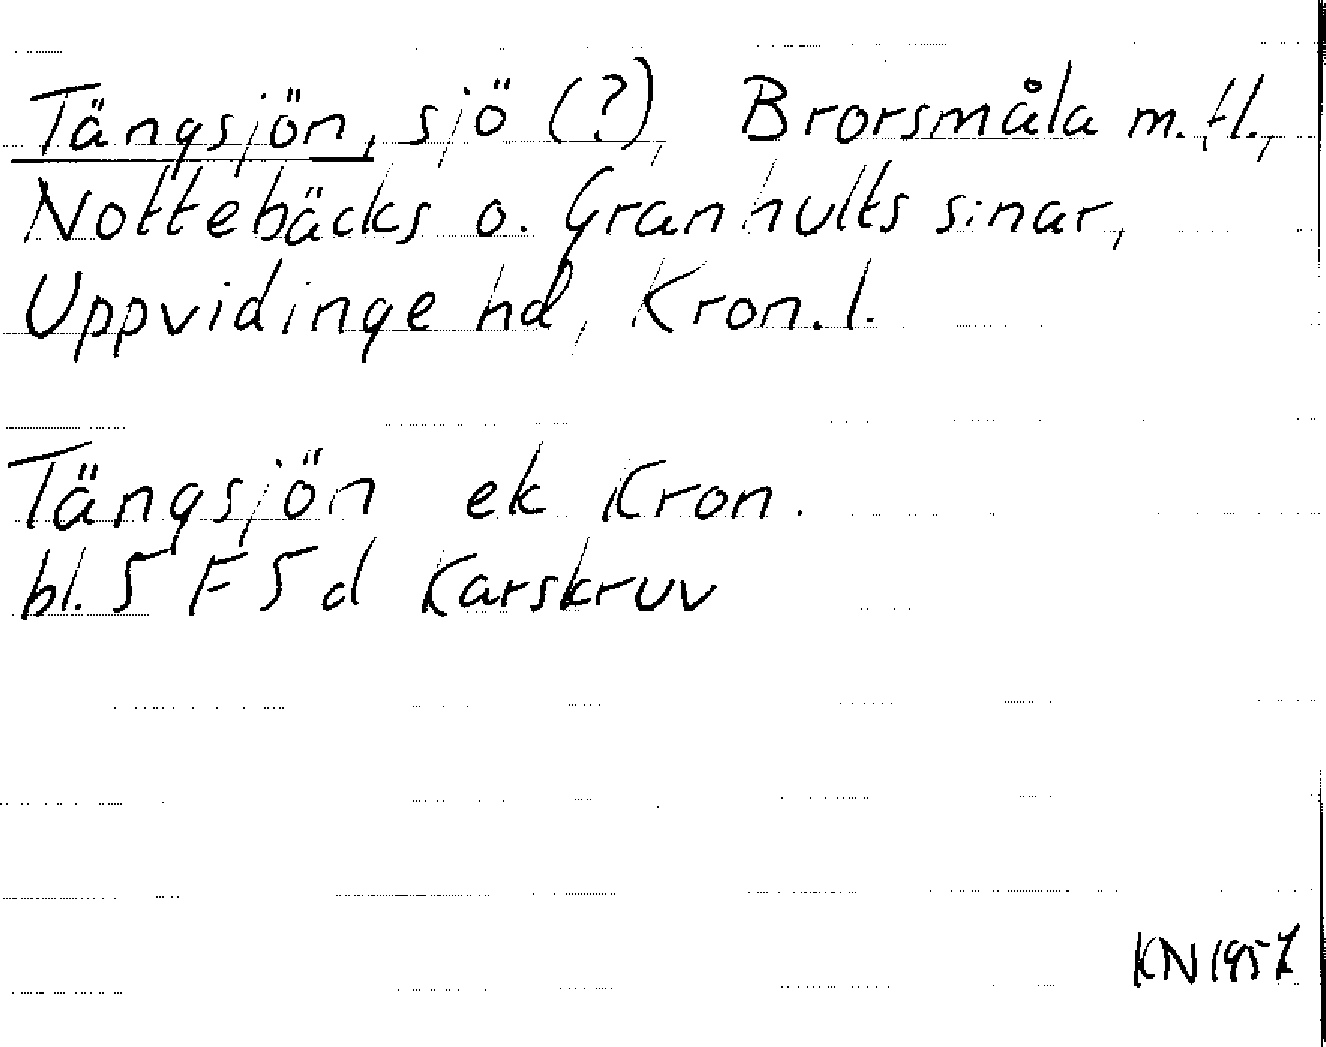 Tängsjön, sjö (?), Brorsmåla m.fl.,
Nottebäcks o. Granhults s:nar,
Uppvidinge hd, Kron. l.
Tängsjön ek Kron.
bl. 5 F 5 d Karskruv
KN 1957